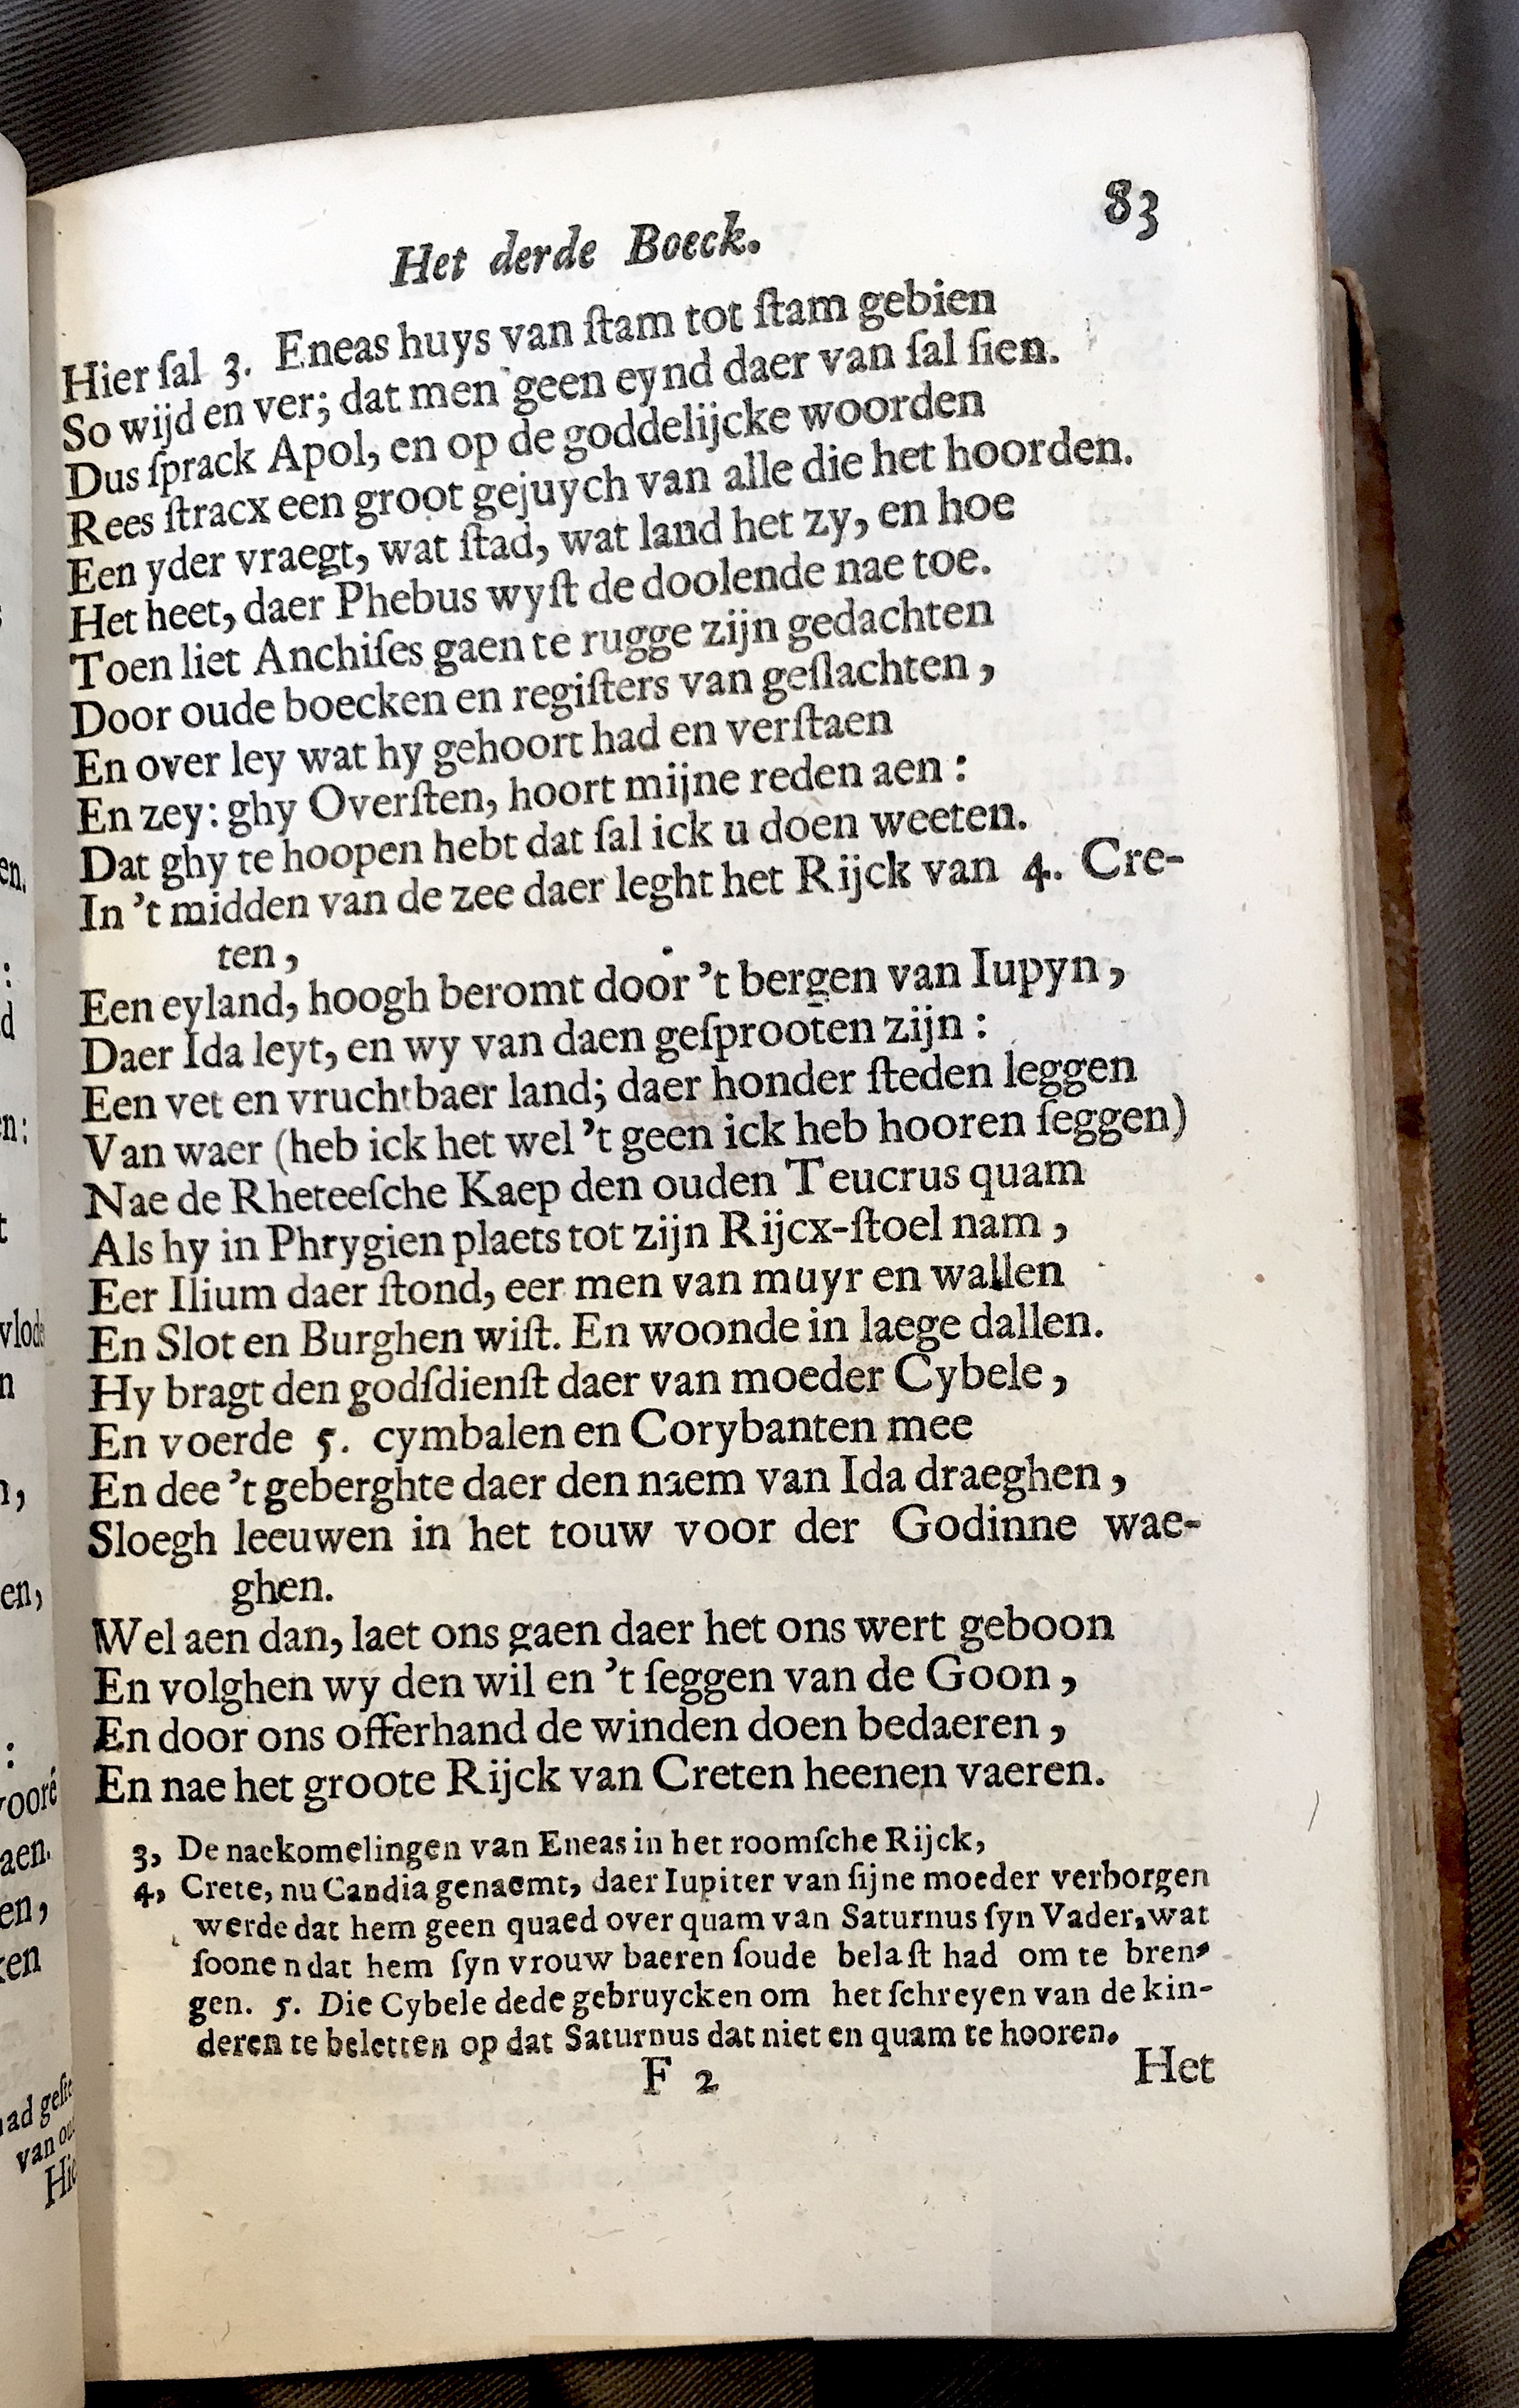 83
Het derde Boeck.
Hier ſal 3. Eneas huys van ſtam tot ſtam gebien
So wijd en ver; dat men geen eynd daer van ſal ſien.
Dus ſprack Apol, en op de goddelijcke woorden
Rees ſtracx een groot gejuych van alle die het hoorden.
Een yder vraegt, wat ſtad, wat land het zy, en hoe
Het heet, daer Phebus wyſt de doolende nae toe.
Toen liet Anchiſes gaen te rugge zijn gedachten
Door oude boecken en regiſters van geſlachten,
En over ley wat hy gehoort had en verſtaen
En zey: ghy Overſten, hoort mijne reden aen:
Dat ghy te hoopen hebt dat ſal ick u doen weeten.
In 't midden van de zee daer leght het Rijck van 4. Cre-
ten,
Een eyland, hoogh beromt door 't bergen van Iupyn,
Daer Ida leyt, en wy van daen geſprooten zijn:
Een vet en vruchtbaer land; daer honder ſteden leggen
Van waer (heb ick het wel 't geen ick heb hooren ſeggen)
Nae de Rheteeſche Kaep den ouden Teucrus quam
Als hy in Phrygien plaets tot zijn Rijcx-ſtoel nam,
Eer Ilium daer ſtond, eer men van muyr en wallen
En Slot en Burghen wiſt. En woonde in laege dallen.
Hy bragt den godſdienſt daer van moeder Cybele,
En voerde 5. cymbalen en Corybanten mee
En dee 't geberghte daer den naem van Ida draeghen,
Sloegh leeuwen in het touw voor der Godinne wae-
ghen.
Wel aen dan, laet ons gaen daer het ons wert geboon
En volghen wy den wil en 't ſeggen van de Goon,
En door ons offerhand de winden doen bedaeren,
En nae het groote Rijck van Creten heenen vaeren.
3, De nackomelingen van Eneas in het roomſche Rijck,
4, Crete, nu Candia genaemt, daer Iupiter van ſijne moeder verborgen
werde dat hem geen quaed over quam van Saturnus ſyn Vader, wat
ſoonen dat hem ſyn vrouw baeren ſoude belaſt had om te bren-
gen. 5. Die Cybele dede gebruycken om het ſchreyen van de kin-
deren te beletten op dat Saturnus dat niet en quam te hooren.
F 2
Het